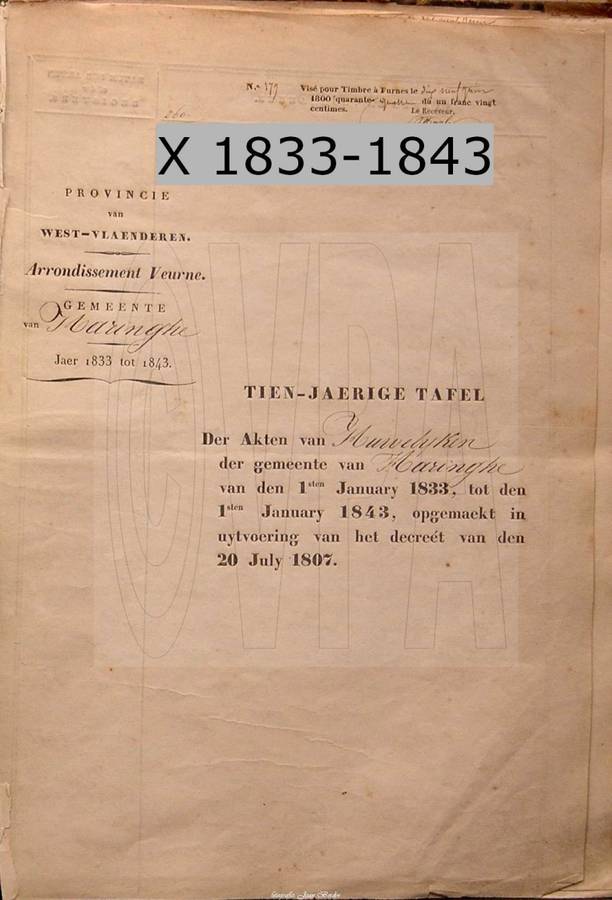 N.
Visé pour Timbre à Furnes le dix neuf
1800 quarante- du un franc vingt
centimes. Le Receveur,
X 1833-1843
PROVINCIE
van
WEST-VLAENDEREN.
Arrondissement Veurne.
GEMEENTE
van Haringhe
Jaer 1833 tot 1843.
TIEN-JAERIGE TAFEL
Der Akten van Huwelyken
der gemeente van Haringhe
van den 1sten January 1833, tot den
1sten January 1843, opgemaekt in
uytvoering van het decreét van den
20 July 1807.
OVPA